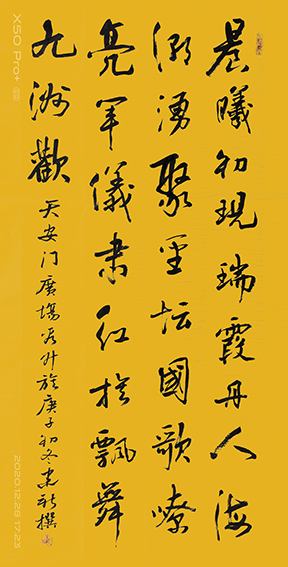 晨曦初現瑞霞丹人海
潮湧聚聖坛國歌嘹
亮軍儀肃红旗飘舞
九洲歡
天安门廣場看升旗庚子初冬撰
X50 Pro+
2020.12.26 17:23